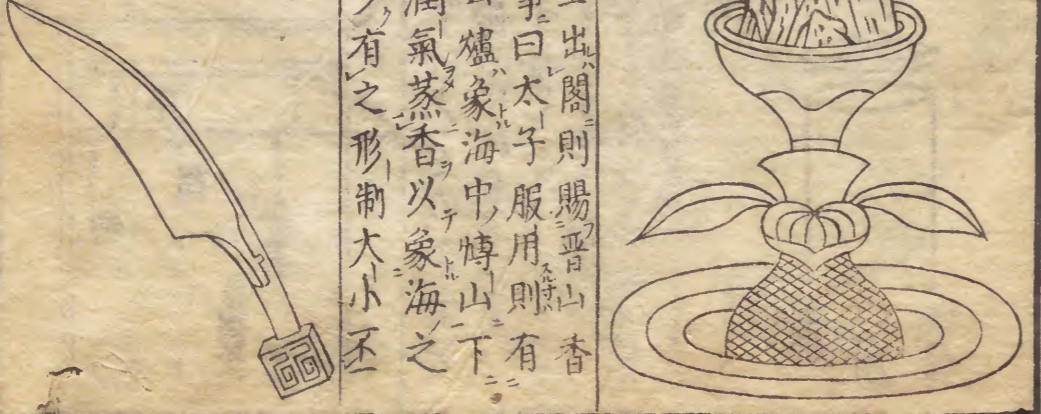 出閣則賜晋山香
事曰太子服用則有
爐象海中愽山下
潤氣蒸香以象海之
有之形制大小丕